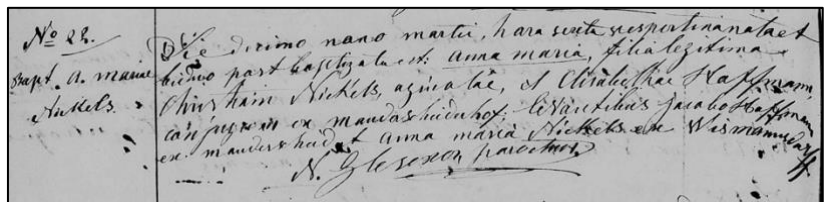 No 22.
Bapt. a. mariae
Nickels.
Die decimo nono martii, hora sexta vespertina nata et
biduo post baptizata est: anna maria, filia legitima
Christiani Nickels, et Elisabethae Hoffmann,
conjugum ex manderscheiderhof. levantibus jacobo Hoffmann
ex manderscheid et anna maria Nickels ex Wismannsdorff
N. parochus